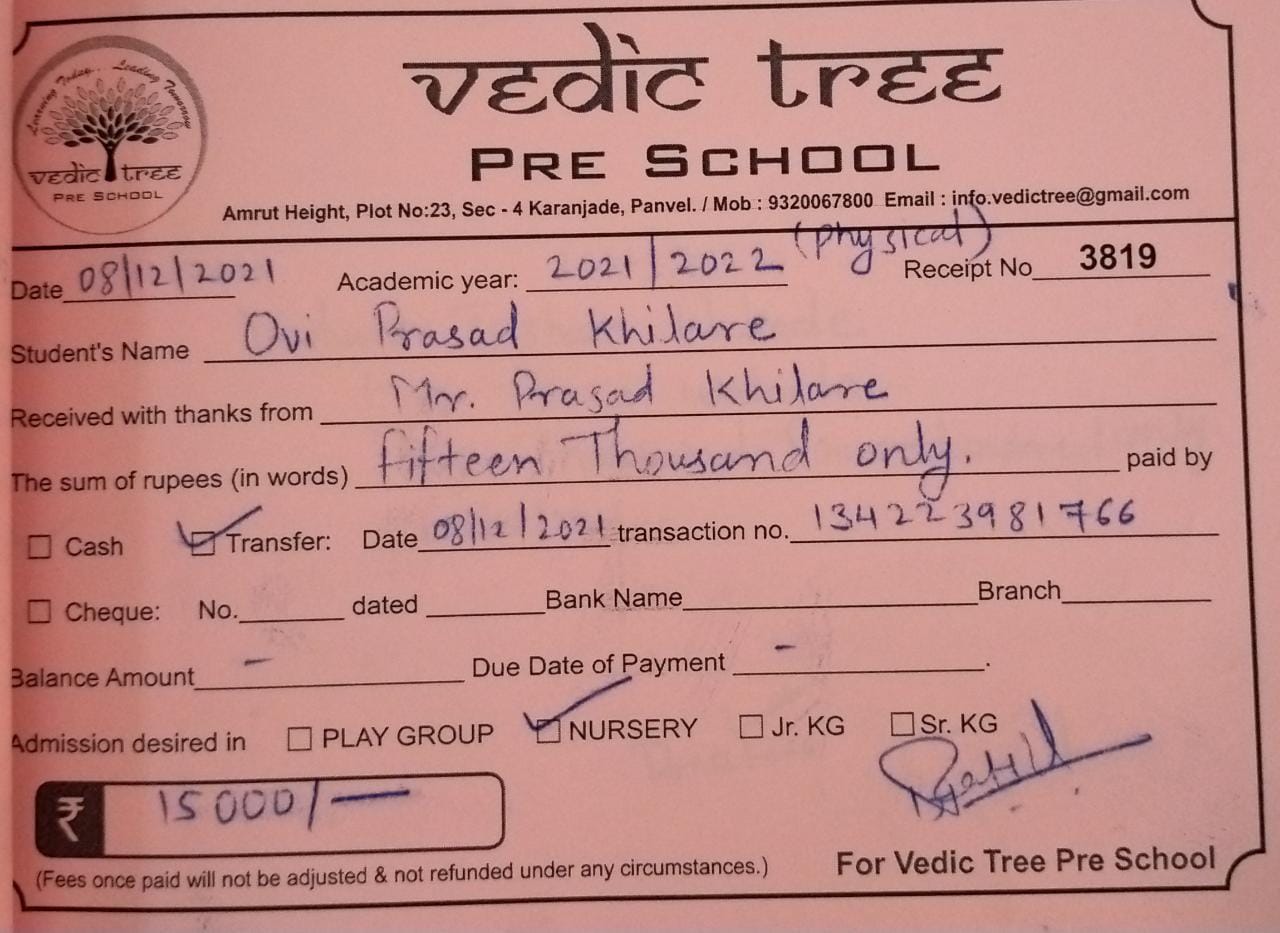 Learning Today... Leading Tomorrow
vedic tree
PRE SCHOOL
vedic tree
PRE SCHOOL
Amrut Height, Plot No:23, Sec - 4 Karanjade, Panvel. / Mob : 9320067800 Email : info.vedictree@gmail.com
(Physical)
Date 08/12/2021 Academic year: 2021/2022 Receipt No 3819
Student's Name Ovi Prasad Khilare
Received with thanks from Mr. Prasad Khilare
The sum of rupees (in words) fifteen Thousand only. paid by
Cash Transfer: Date 08/12/2021 transaction no. 134223981766
Cheque: No. dated Bank Name Branch
Balance Amount - Due Date of Payment - .
Admission desired in PLAY GROUP NURSERY Jr. KG Sr. KG
₹ 15000/-
(Fees once paid will not be adjusted & not refunded under any circumstances.) For Vedic Tree Pre School